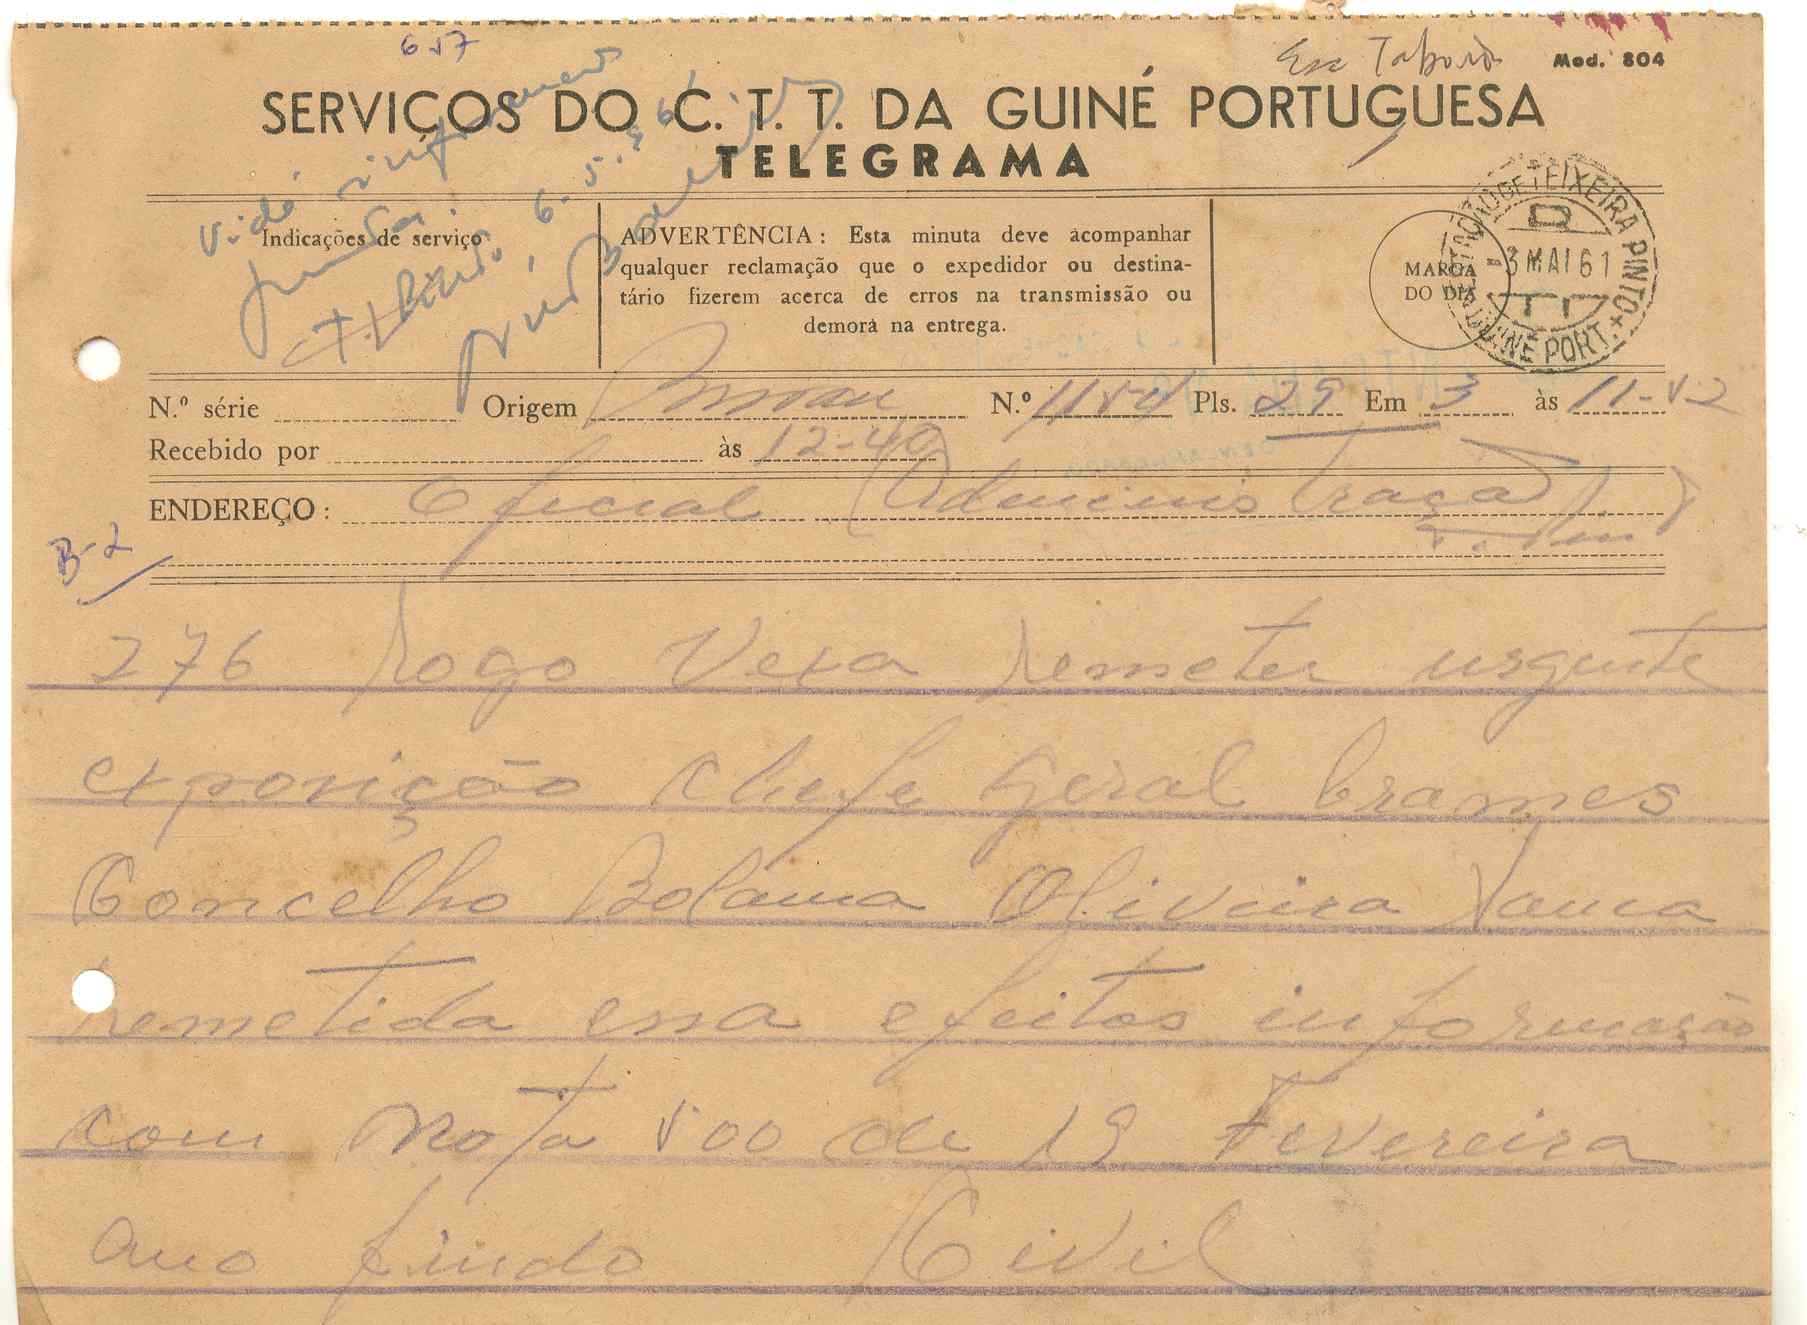 617
Mod. 804
SERVIÇOS DO C. T. T. DA GUINÉ PORTUGUESA
TELEGRAMA
Indicações de serviço
ADVERTÊNCIA : Esta minuta deve acompanhar
qualquer reclamação que o expedidor ou destina-
tário fizerem acerca de erros na transmissão ou
demora na entrega.
MARCA
DO DIA
TEIXEIRA PINTO
3 MAI 61
GUINÉ PORT.
6.5.961
N.º série Origem Bissau N.º 1154 Pls. 29 Em 3 às 11-52
Recebido por às 12-40
ENDEREÇO : Oficial Administração
B-2
276 Rogo Vexa remeter urgente
exposição chefe geral brames
Concelho Bolama Oliveira Sanca
remetida essa efeitos informação
com nota 500 de 19 Fevereiro
ano findo Civil